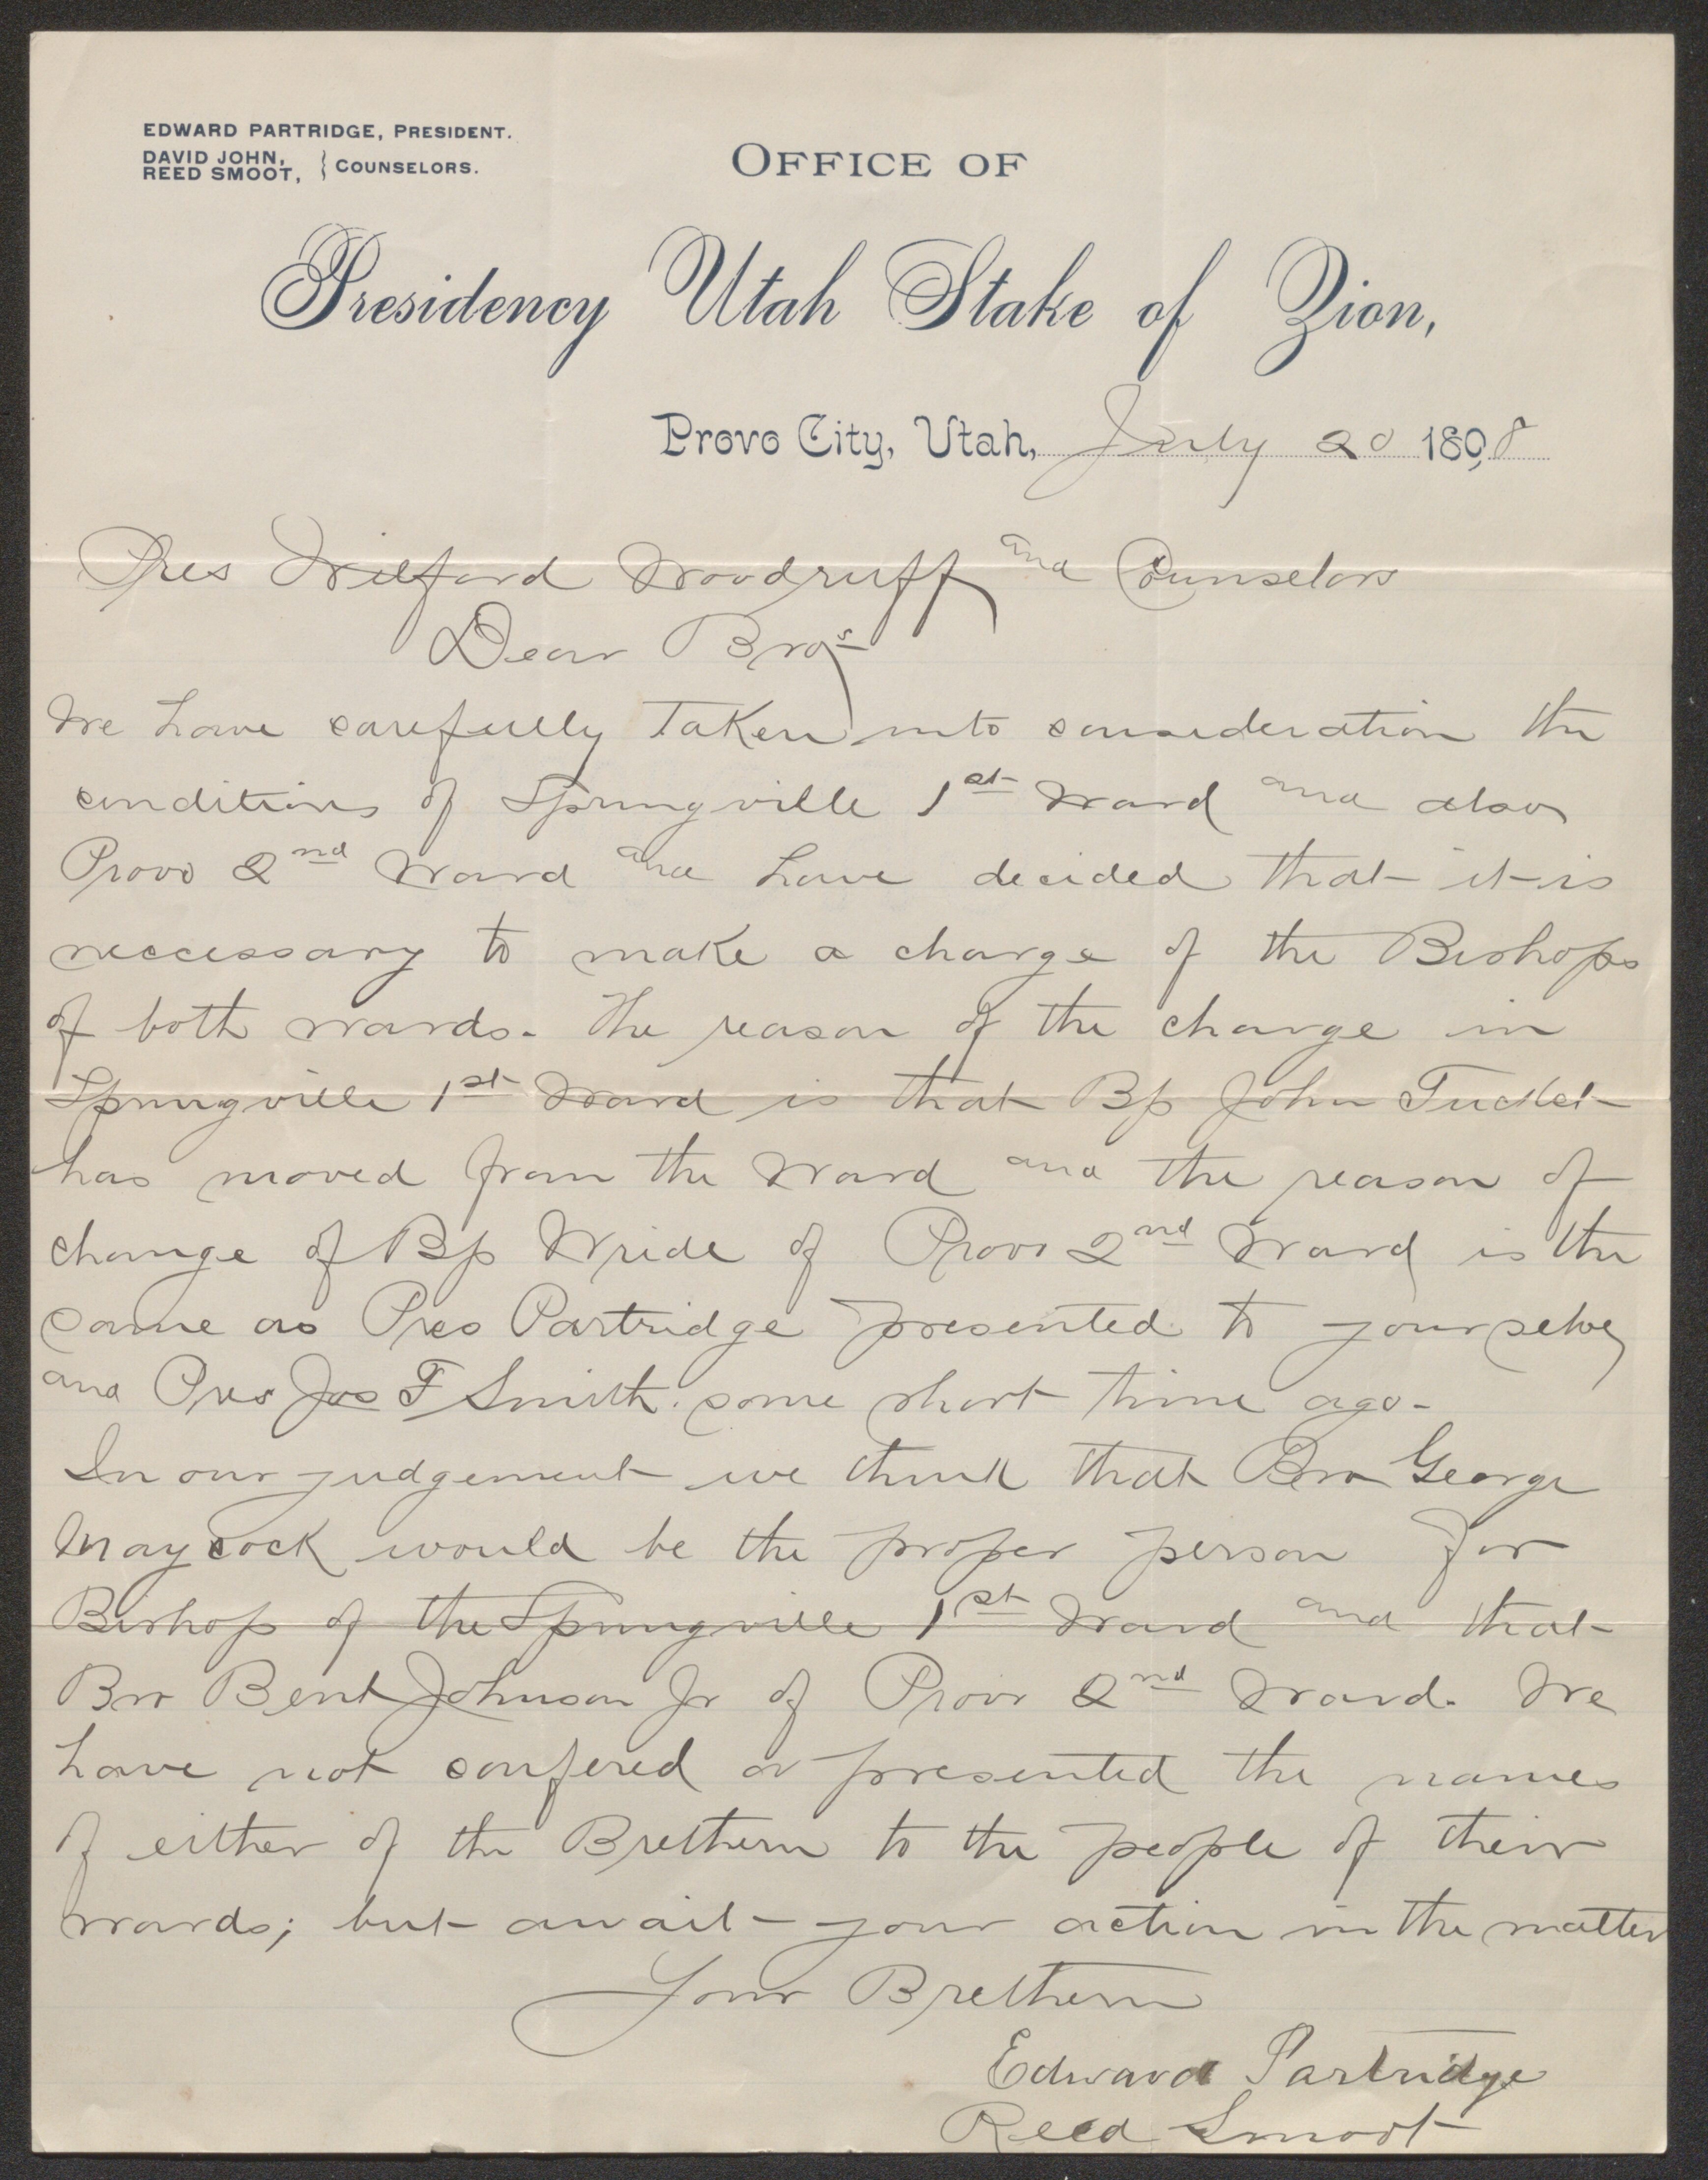 EDWARD PARTRIDGE, PRESIDENT.
DAVID JOHN,
REED SMOOT, } COUNSELORS.
OFFICE OF
Presidency Utah Stake of Zion,
Provo City, Utah, July 20 1898
Pres Wilford Woodruff and Counselors
Dear Bros
We have carefully taken into consideration the
conditions of Springville 1st Ward and also
Provo 2nd Ward and have decided that it is
neccessary to make a change of the Bishops
of both wards. The reason of the change in
Springville 1st Ward is that Bp John Tuckett
has moved from the Ward and the reason of
change of Bp Wride of Provo 2nd Ward is the
same as Pres Partridge presented to yourselves
and Pres Jos F Smith some short time ago.
In our judgement we think that Bro George
Maycock would be the proper person for
Bishop of the Springville 1st Ward and that
Bro Bent Johnson Jr of Provo 2nd Ward. We
have not confered or presented the names
of either of the Brethern to the people of their
wards; but await your action in the matter
Your Brethern
Edward Partridge
Reed Smoot